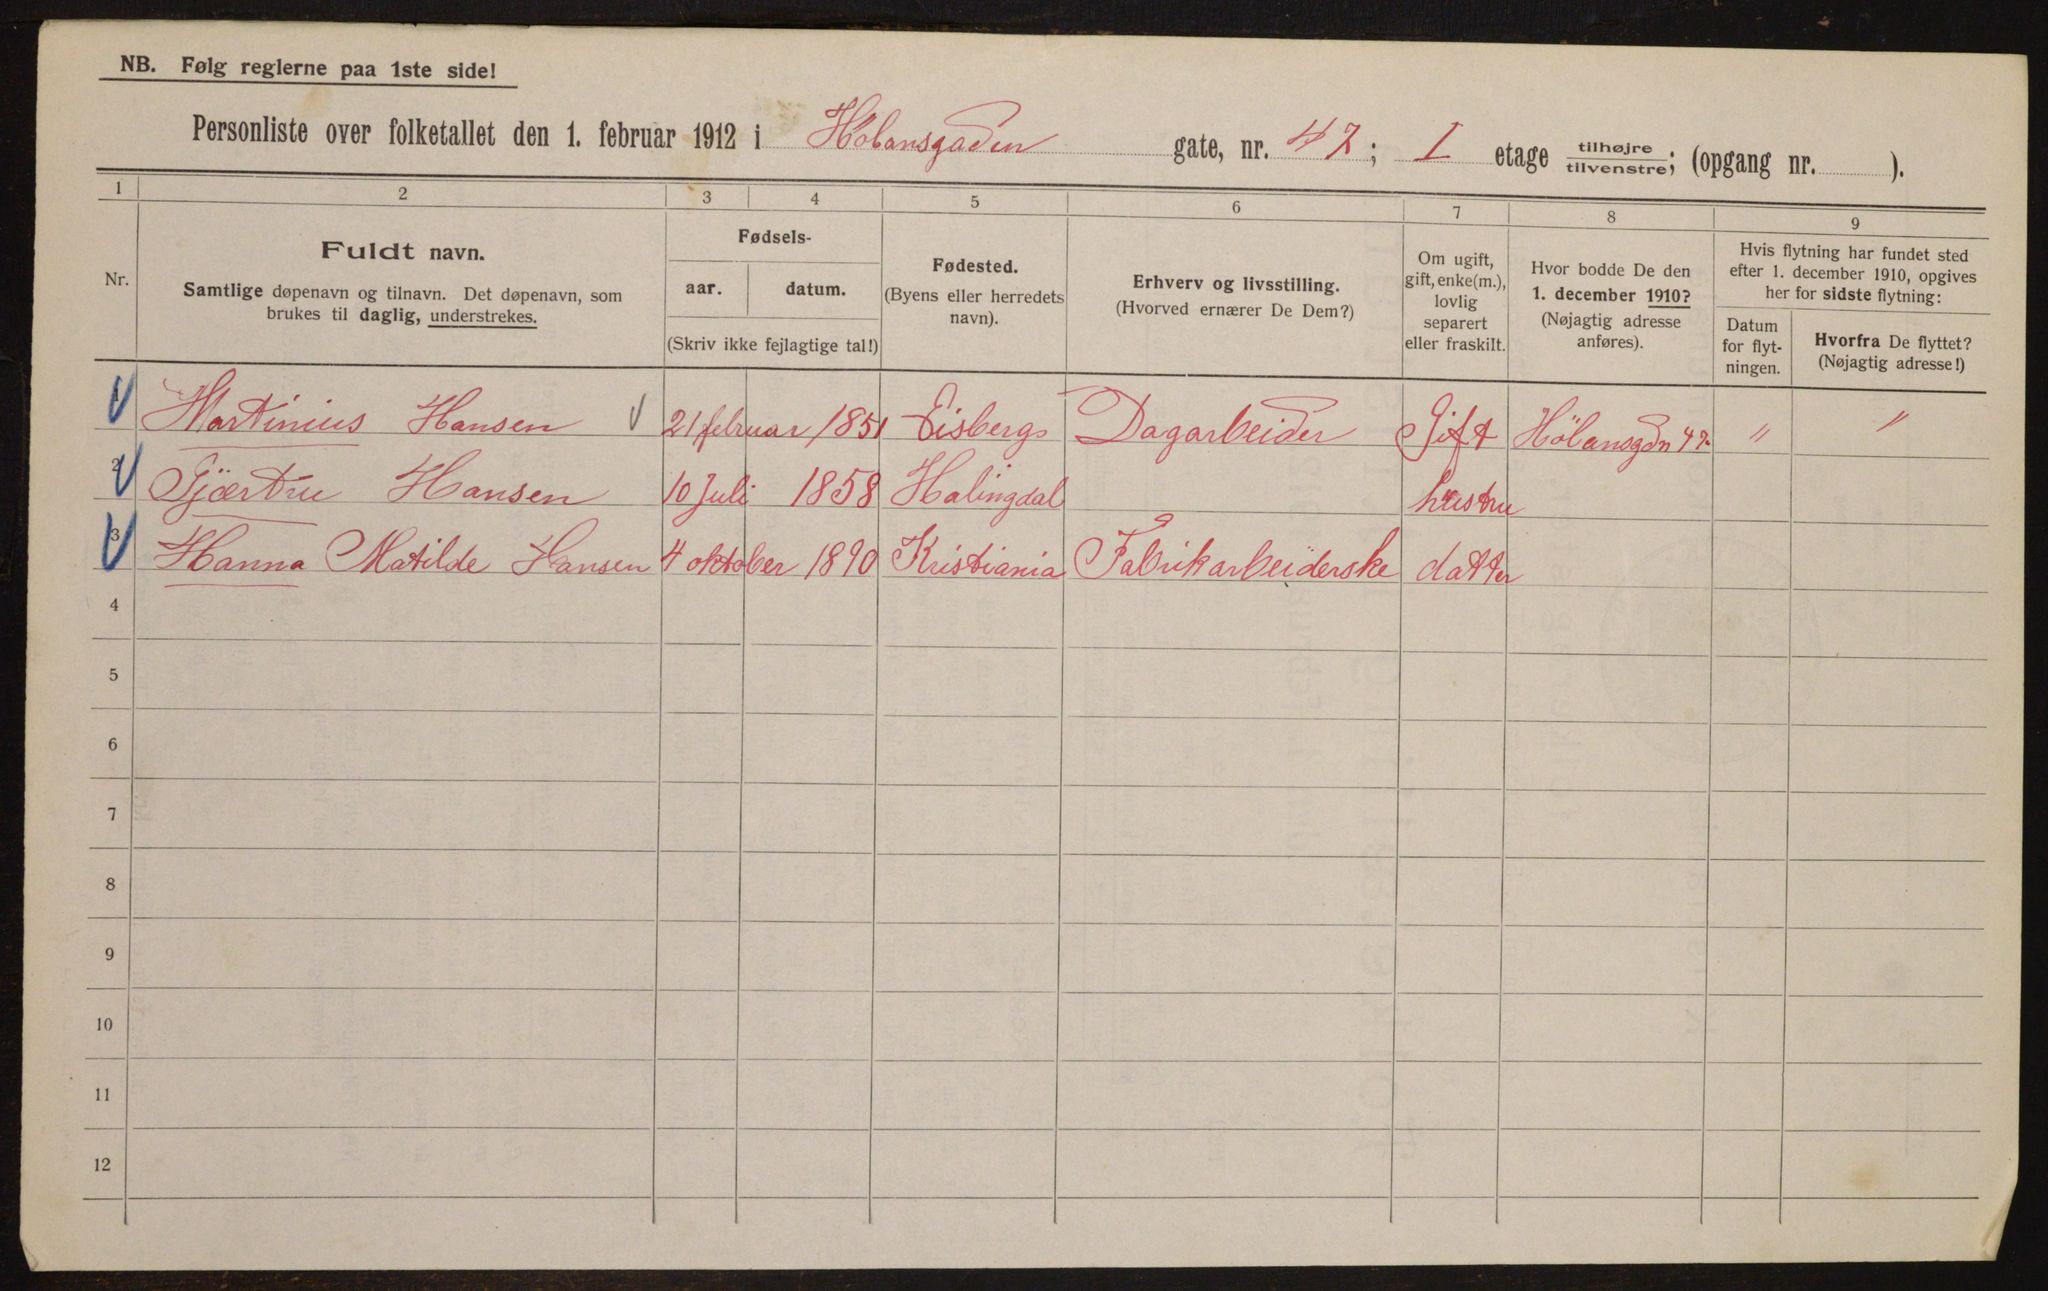 NB. Følg reglerne paa 1ste side!
Personliste over folketallet den 1. februar 1912 i Hölansgaden gate, nr. 47; I etage tilhøjre/tilvenstre; (opgang nr. ).
1 2 3 4 5 6 7 8 9
Nr.
Fuldt navn.
Samtlige døpenavn og tilnavn. Det døpenavn, som
brukes til daglig, understrekes.
Fødsels-
aar. datum.
(Skriv ikke fejlagtige tal!)
Fødested.
(Byens eller herredets
navn).
Erhverv og livsstilling.
(Hvorved ernærer De Dem?)
Om ugift,
gift, enke(m.),
lovlig
separert
eller fraskilt.
Hvor bodde De den
1. december 1910?
(Nøjagtig adresse
anføres).
Hvis flytning har fundet sted
efter 1. december 1910, opgives
her for sidste flytning:
Datum
for flyt-
ningen.
Hvorfra De flyttet?
(Nøjagtig adresse!)
1 Martinius Hansen 21 februar 1851 Eisbergs Dagarbeider Gift Hölansgdn 47 " "
2 Gjærtru Hansen 10 Juli 1858 Halingdal hustru
3 Hanna Matilde Hansen 4 oktober 1890 Kristiania Fabrikarbeiderske datter
4
5
6
7
8
9
10
11
12